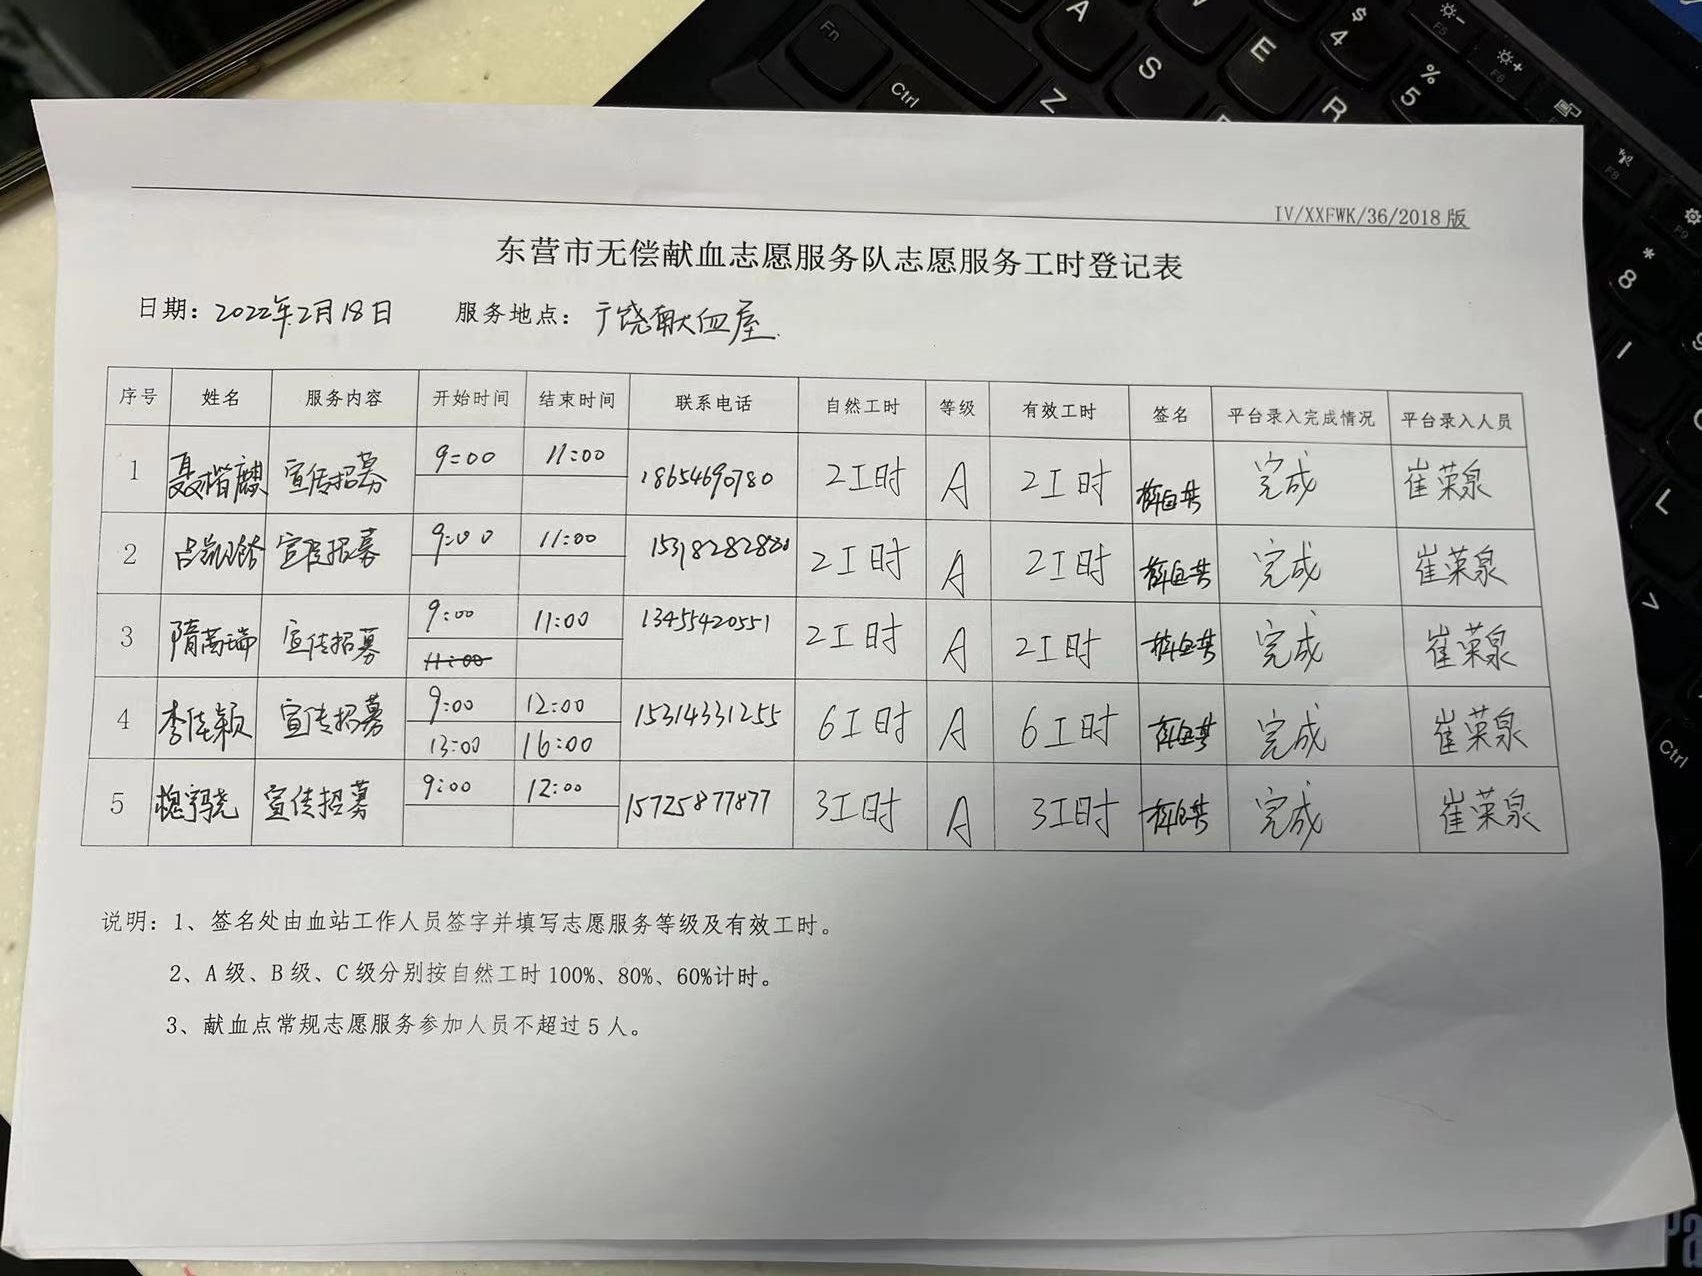 IV/XXFWK/36/2018版
东营市无偿献血志愿服务队志愿服务工时登记表
日期：2022年2月18日 服务地点：广饶献血屋
序号 姓名 服务内容 开始时间 结束时间 联系电话 自然工时 等级 有效工时 签名 平台录入完成情况 平台录入人员
1 聂楷麒 宣传招募 9:00 11:00 18654690780 2工时 A 2工时 完成 崔荣泉
2 宣传招募 9:00 11:00 2工时 A 2工时 完成 崔荣泉
3 隋芮瑞 宣传招募 9:00 11:00 13455420551 2工时 A 2工时 完成 崔荣泉
11:00
4 李佳颖 宣传招募 9:00 12:00 15314331255 6工时 A 6工时 完成 崔荣泉
13:00 16:00
5 宣传招募 9:00 12:00 15725877877 3工时 A 3工时 完成 崔荣泉
说明：1、签名处由血站工作人员签字并填写志愿服务等级及有效工时。
2、A级、B级、C级分别按自然工时100%、80%、60%计时。
3、献血点常规志愿服务参加人员不超过5人。
Fn
Ctrl
A
S
Z
E
R
$
4
%
5
F5
F6
F8
F9
*
8
I
L
Ctrl